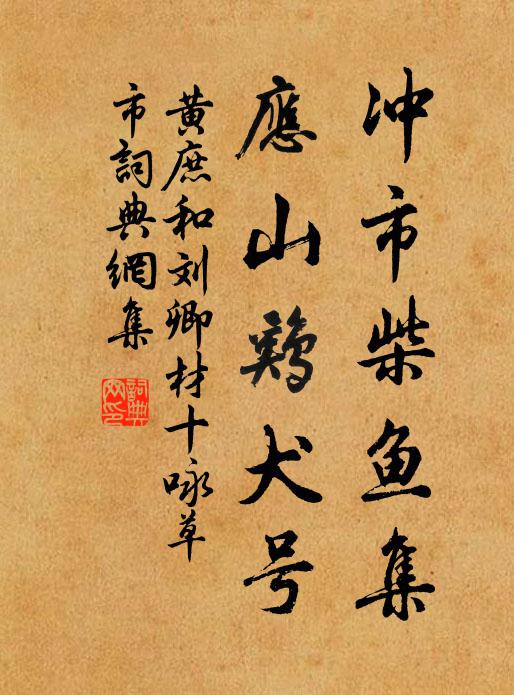 冲市柴鱼集
應山鷄犬号
黄庶和刘卿材十咏草
市詞典網集
詞典網印